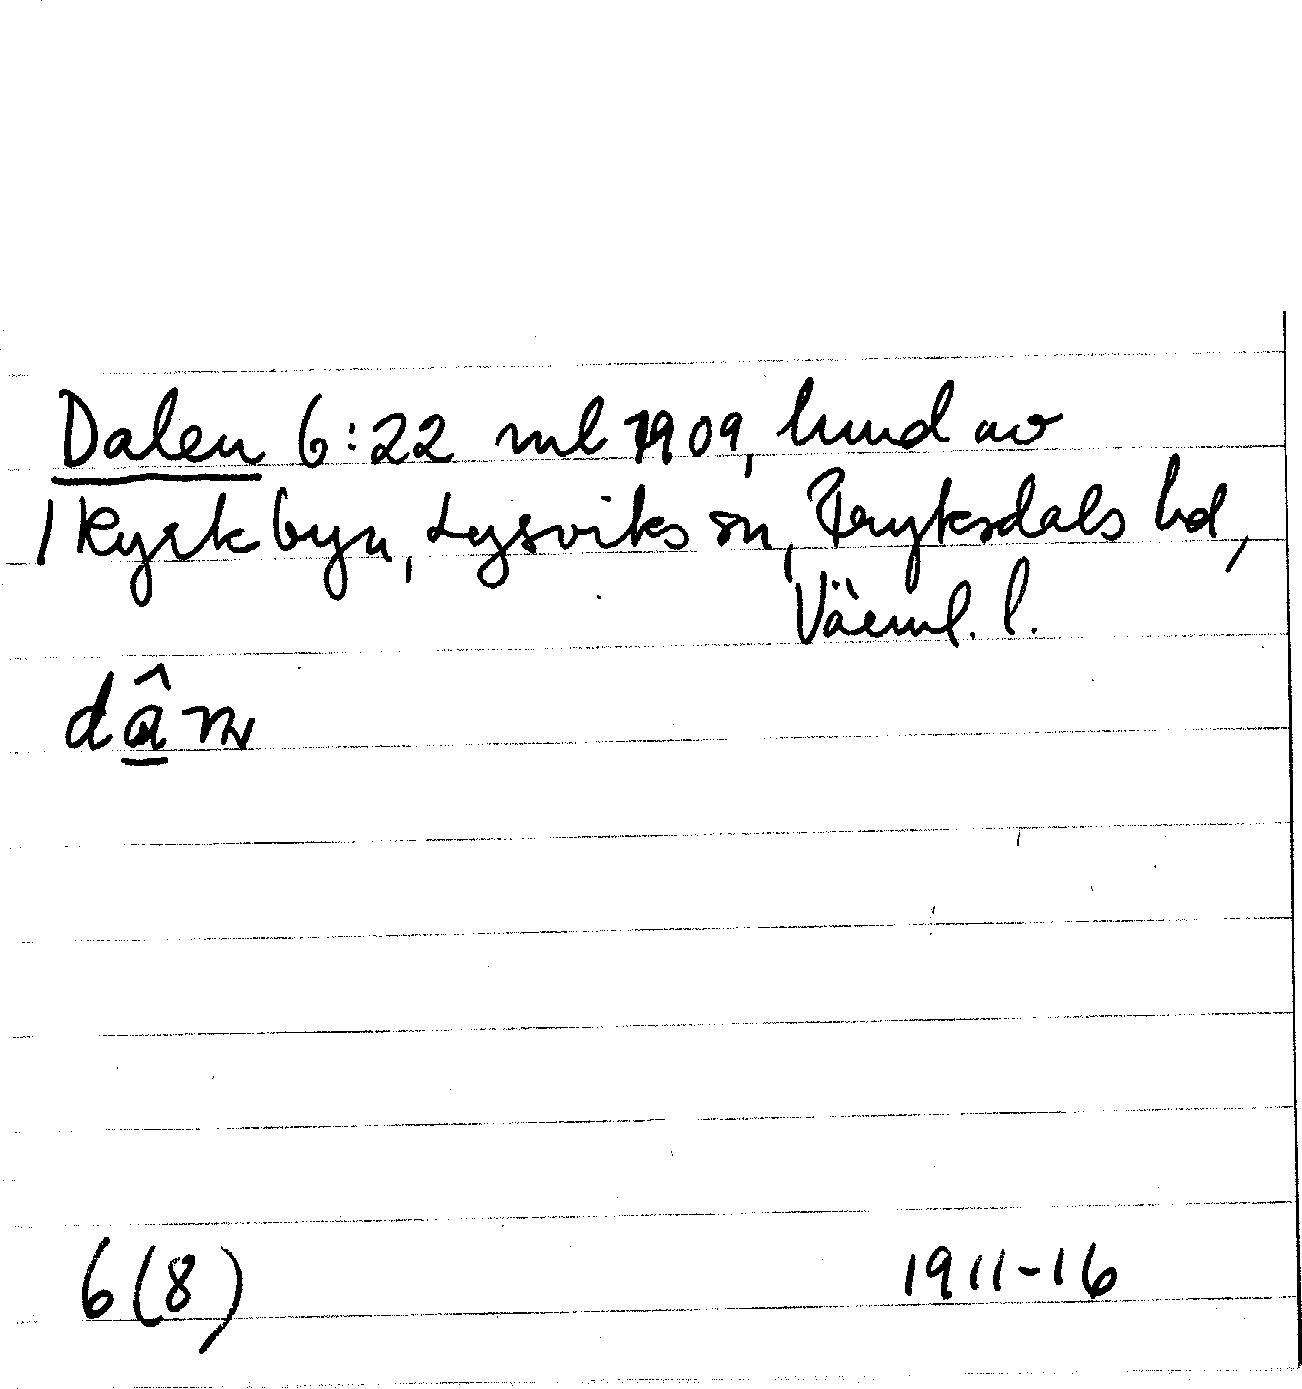 Dalen 6:22 ml 1909, hmd av
/ Kyrkbyn, Lysviks sn, Fryksdals hd,
Värml. l.
dâ̱n
6(8) 1911-16